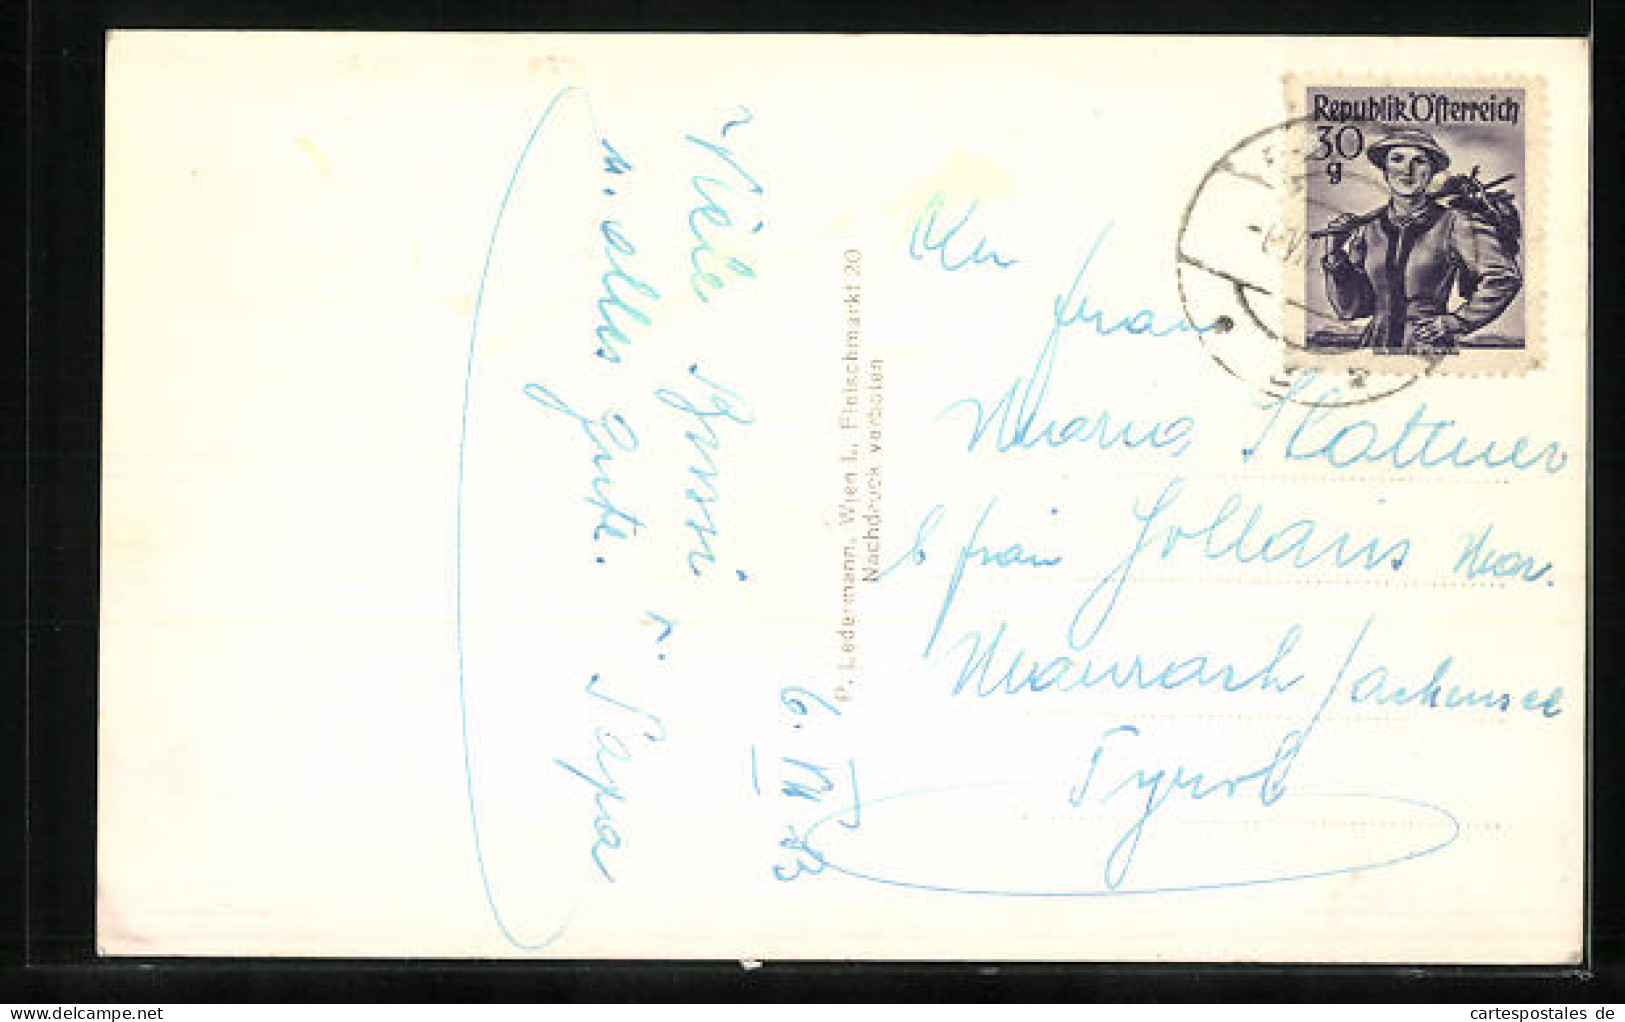 Viele Bussi
u. alles Gute.
v. Papa
6. VII 53
P. Ledermann, Wien I., Fleischmarkt 20
Nachdruck verboten
Republik Österreich
30
g
An
Frau
Maria Slattner
b Frau
Maurach / Achensee
Tyrol
cartespostales de